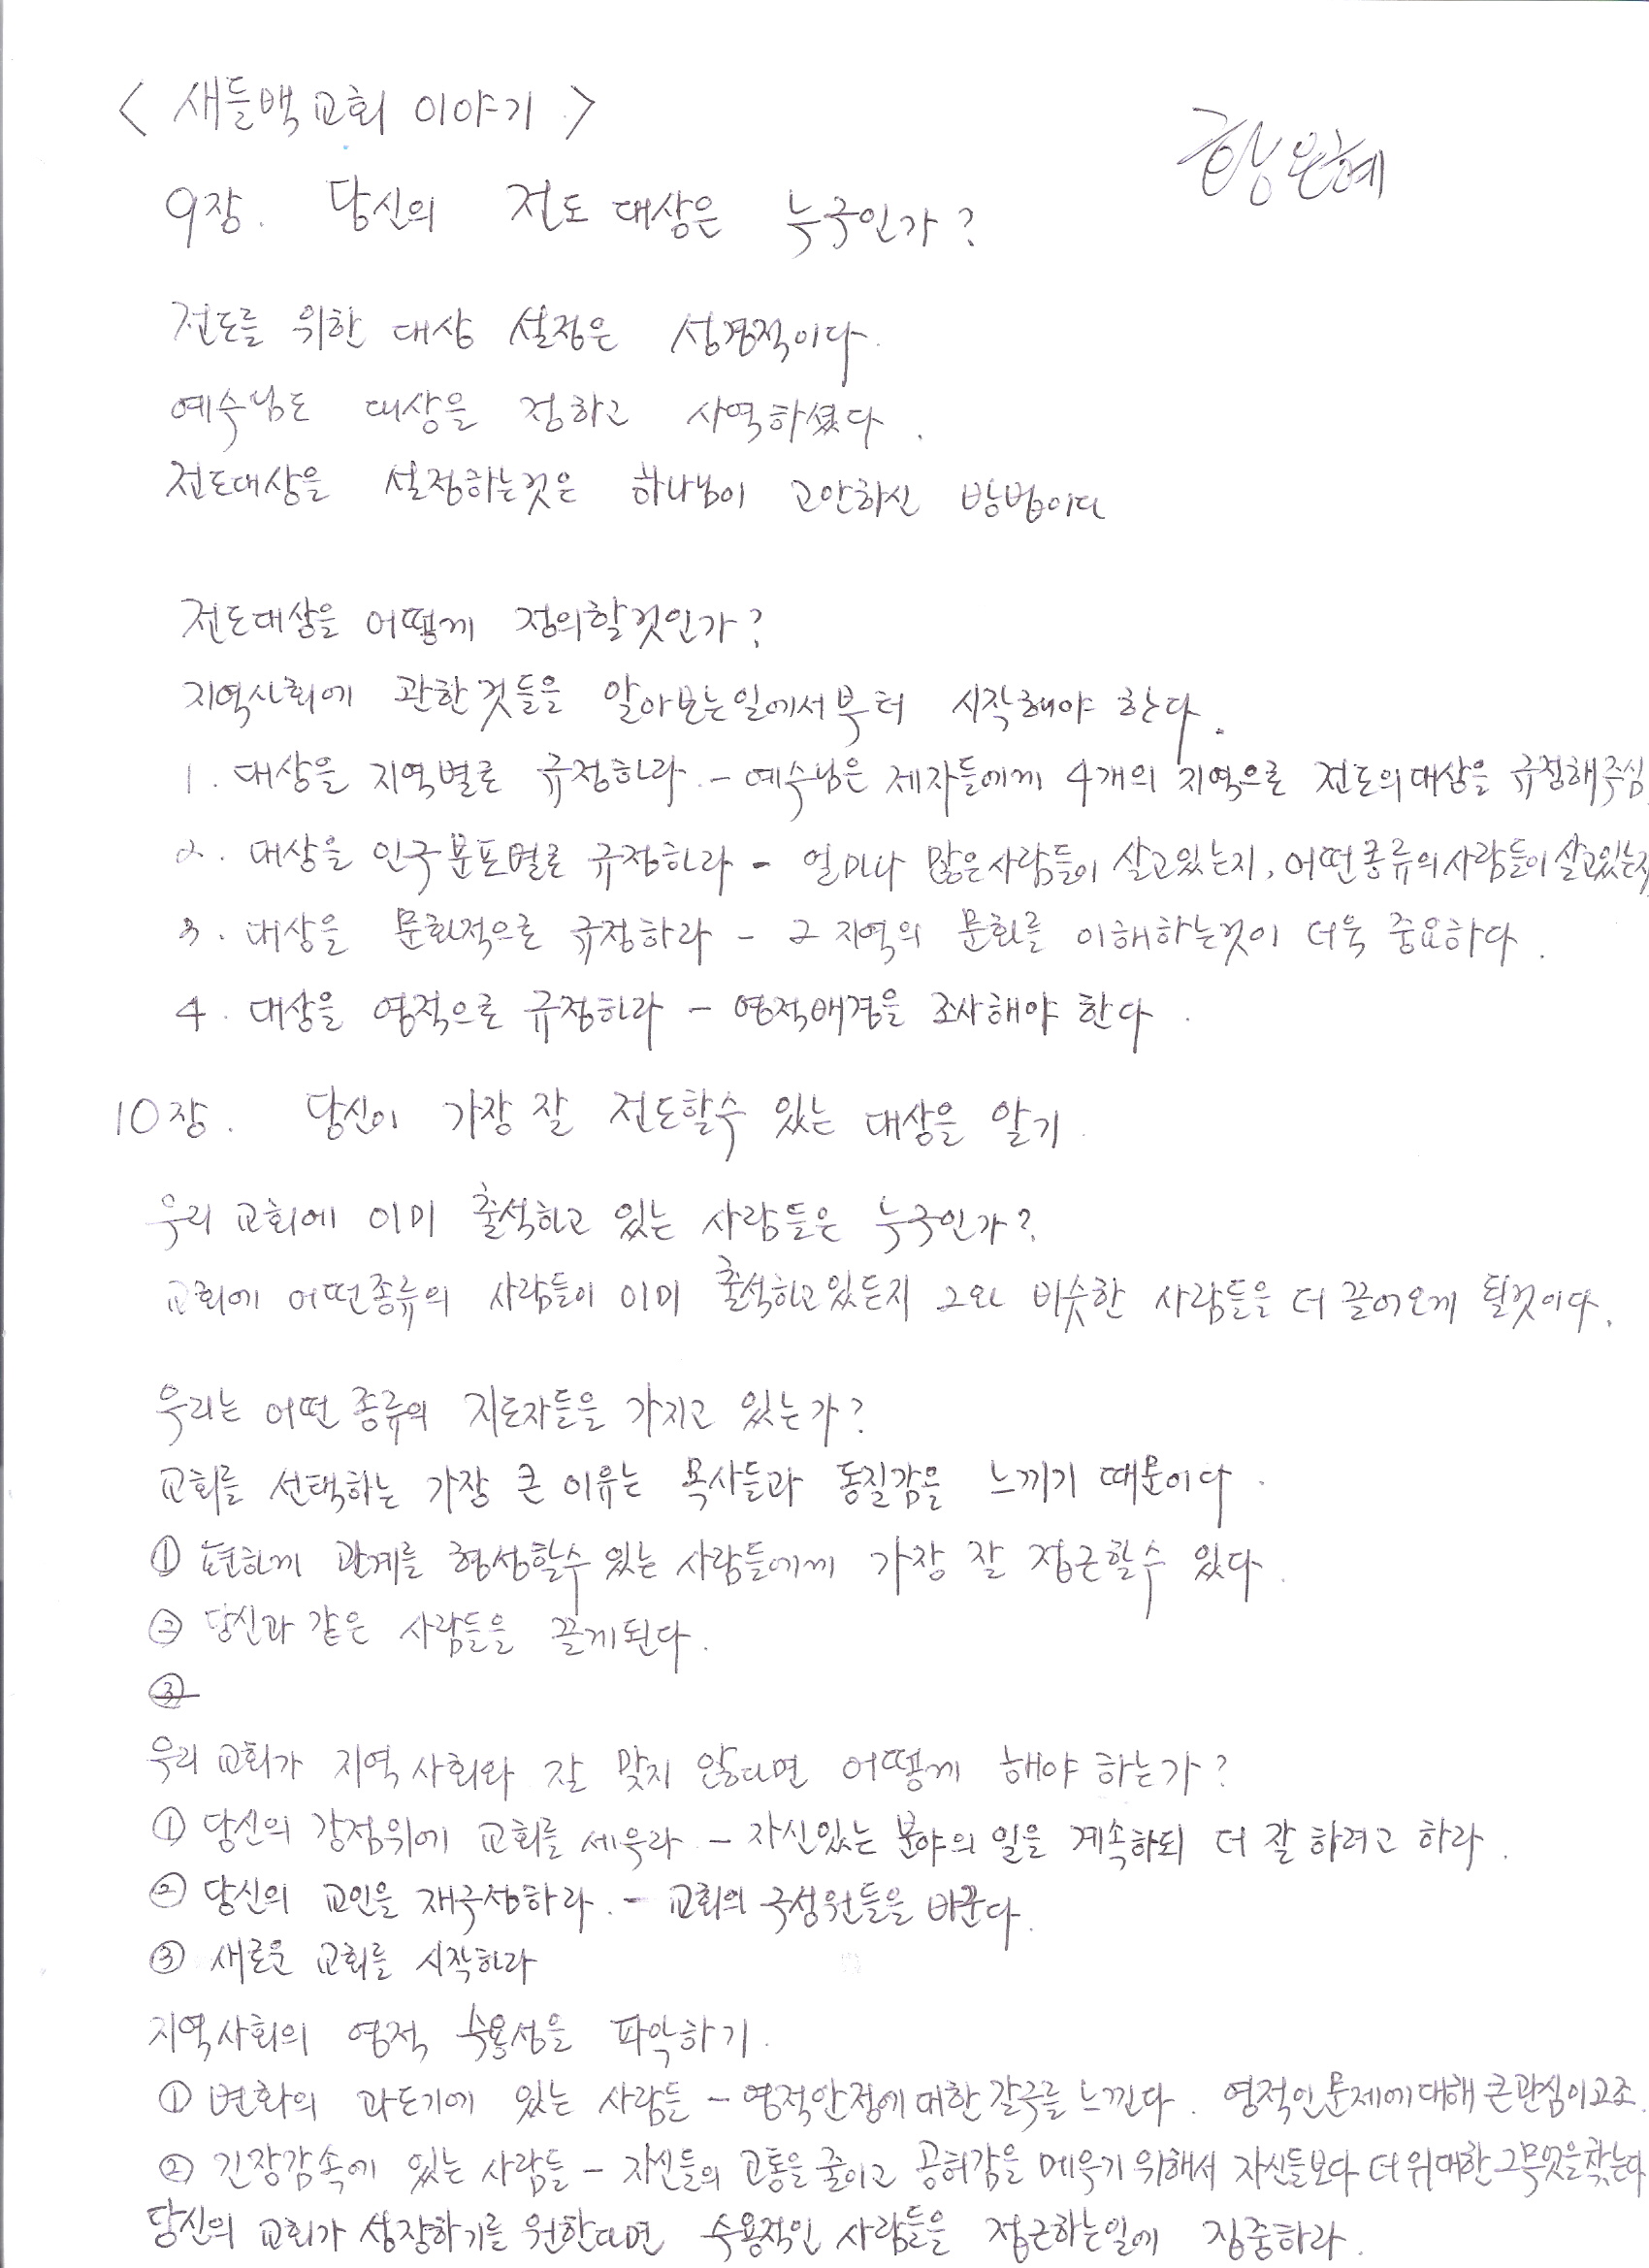 < 새들백교회 이야기 >
황은혜
9장. 당신의 전도 대상은 누구인가?
전도를 위한 대상 설정은 성경적이다.
예수님도 대상을 정하고 사역하셨다.
전도대상을 설정하는것은 하나님이 고안하신 방법이다
전도대상을 어떻게 정의할것인가?
지역사회에 관한것들을 알아보는일에서부터 시작해야 한다.
1. 대상을 지역별로 규정하라. - 예수님은 제자들에게 4개의 지역으로 전도의대상을 규정해주심
2. 대상을 인구분포별로 규정하라 - 얼마나 많은사람들이 살고있는지, 어떤종류의사람들이살고있는지
3. 대상을 문화적으로 규정하라 - 그 지역의 문화를 이해하는것이 더욱 중요하다.
4. 대상을 영적으로 규정하라 - 영적배경을 조사해야 한다.
10장. 당신이 가장 잘 전도할수 있는 대상을 알기.
우리 교회에 이미 출석하고 있는 사람들은 누구인가?
교회에 어떤종류의 사람들이 이미 출석하고있든지 그와 비슷한 사람들을 더 끌어오게 될것이다.
우리는 어떤 종류의 지도자들을 가지고 있는가?
교회를 선택하는 가장 큰 이유는 목사들과 동질감을 느끼기 때문이다.
① 편하게 관계를 형성할수 있는 사람들에게 가장 잘 접근할수 있다.
② 당신과 같은 사람들을 끌게된다.
③
우리 교회가 지역 사회와 잘 맞지 않다면 어떻게 해야 하는가?
① 당신의 강점위에 교회를 세우라 - 자신있는 분야의 일을 계속하되 더 잘 하려고 하라.
② 당신의 교인을 재구성하라. - 교회의 구성원들을 바꾼다.
③ 새로운 교회를 시작하라
지역사회의 영적 수용성을 파악하기.
① 변화의 과도기에 있는 사람들 - 영적안정에 대한 갈구를 느낀다. 영적인문제에대해 큰관심이고조.
② 긴장감속에 있는 사람들 - 자신들의 고통을 줄이고 공허감을 메우기 위해서 자신들보다 더 위대한 그무엇을찾는다
당신의 교회가 성장하기를 원한다면 수용적인 사람들을 접근하는일에 집중하라.